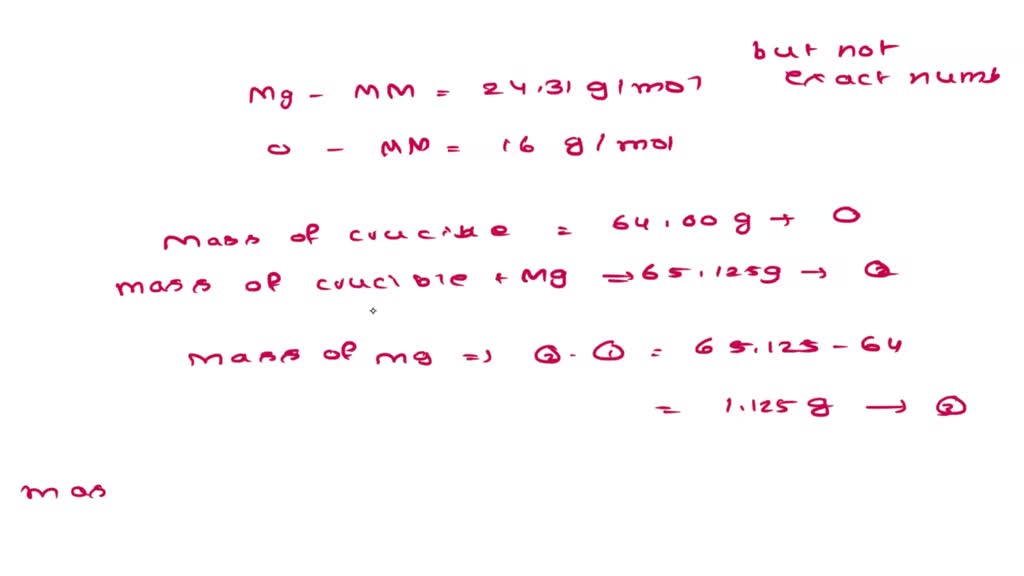 but not
exact numb
Mg - MM = 24.31 g/mol
O - MM = 16 g/mol
mass of crucible = 64.00 g → ①
mass of crucible + Mg => 65.125g → ②
mass of mg => ② - ① = 65.125 - 64
= 1.125 g → ③
mas